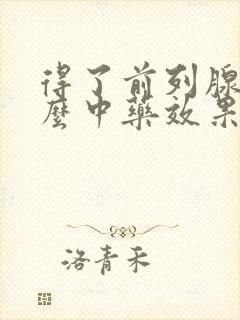 得了前列腺
麼中藥效果
洛青禾